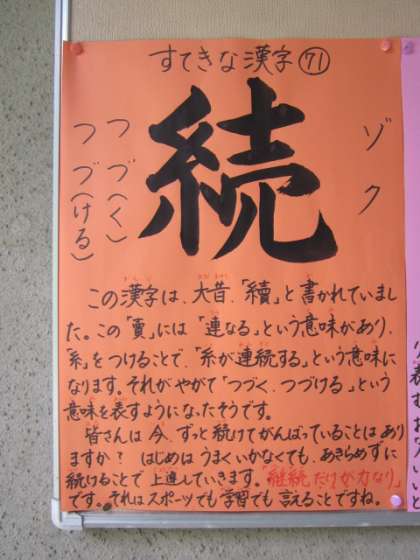 すてきな漢字 71
続
ゾク
つづ(く)
つづ(ける)
この漢字は、大昔、「續」と書かれていまし
た。この「賣」には「連なる」という意味があり、
「糸」をつけることで、「糸が連続する」という意味に
なります。それがやがて「つづく、つづける」という
意味を表すようになったそうです。
皆さんは今、ずっと続けてがんばっていることはあり
ますか? はじめはうまくいかなくても、あきらめずに
続けることで上達していきます。「継続だけが力なり」
です。それはスポーツでも学習でも言えることですね。